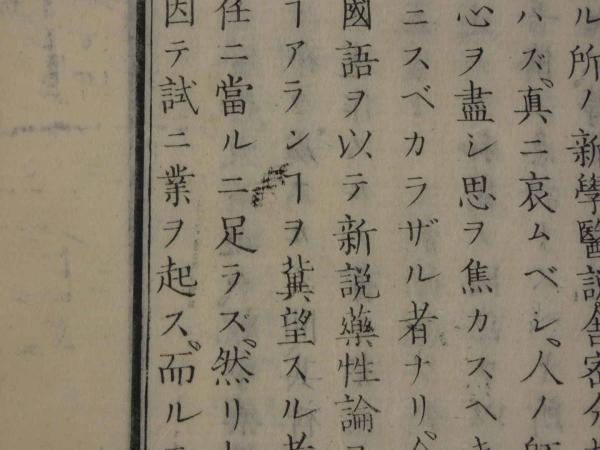 ル所ノ新學醫説舎密
ハズ、真ニ哀ムベシ、人ノ師
心ヲ盡シ思ヲ焦カスヘキ
ニスベカラザル者ナリ、
國語ヲ以テ新説藥性論ヲ
ヿアランヿヲ冀望スル者
任ニ當ルニ足ラズ、然リト
因テ試ニ業ヲ起ス、而ルニ